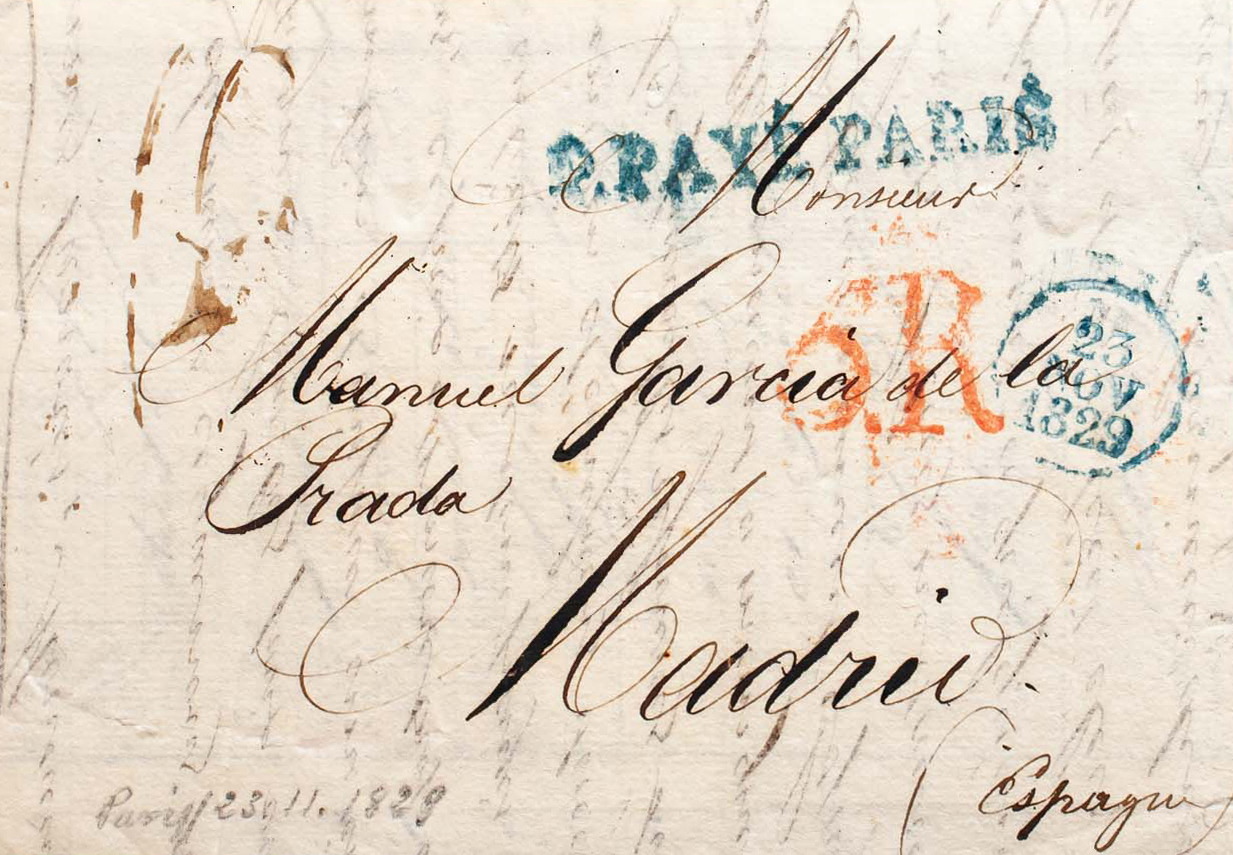 P.PAYÉ PARIS
Monsieur
Manuel Garcia de la
Prada
Madrid.
Espagne
R
23
NOV
1829
Paris 23.11.1829